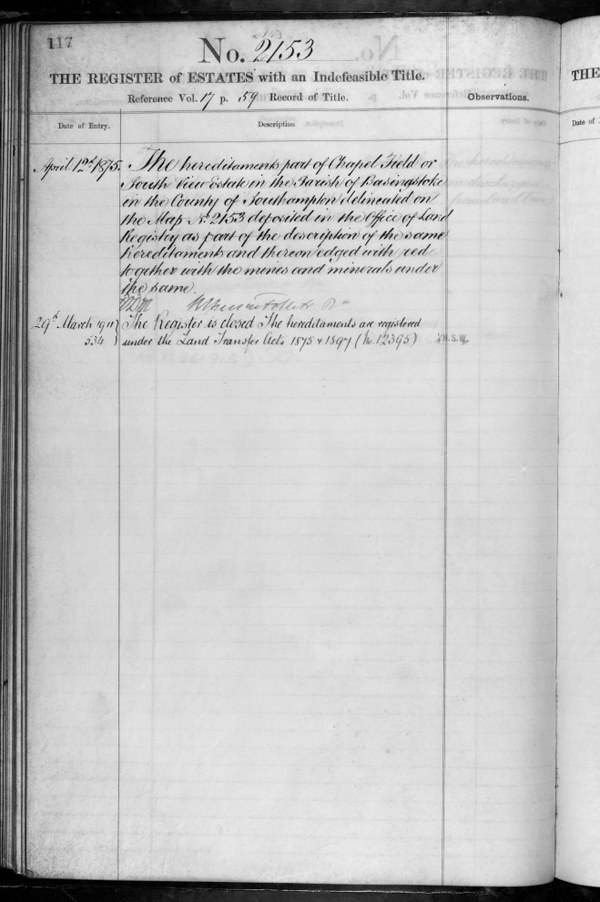 117
No. 2153
THE REGISTER of ESTATES with an Indefeasible Title.
Reference Vol. 17 p. 159 Record of Title.
Observations.
Date of Entry.
Description.
April 12th 1875.
The hereditaments part of Chapel Field or
South View Estate in the Parish of Basingstoke
in the County of Southampton delineated on
the Map No. 2153 deposited in the Office of Land
Registry as part of the description of the same
hereditaments and thereon edged with red
together with the mines and minerals under
the same.
29th March 1911
534
The Register is closed The hereditaments are registered
under the Land Transfer Acts 1875 & 1897 (No. 12395)
THE
Date of